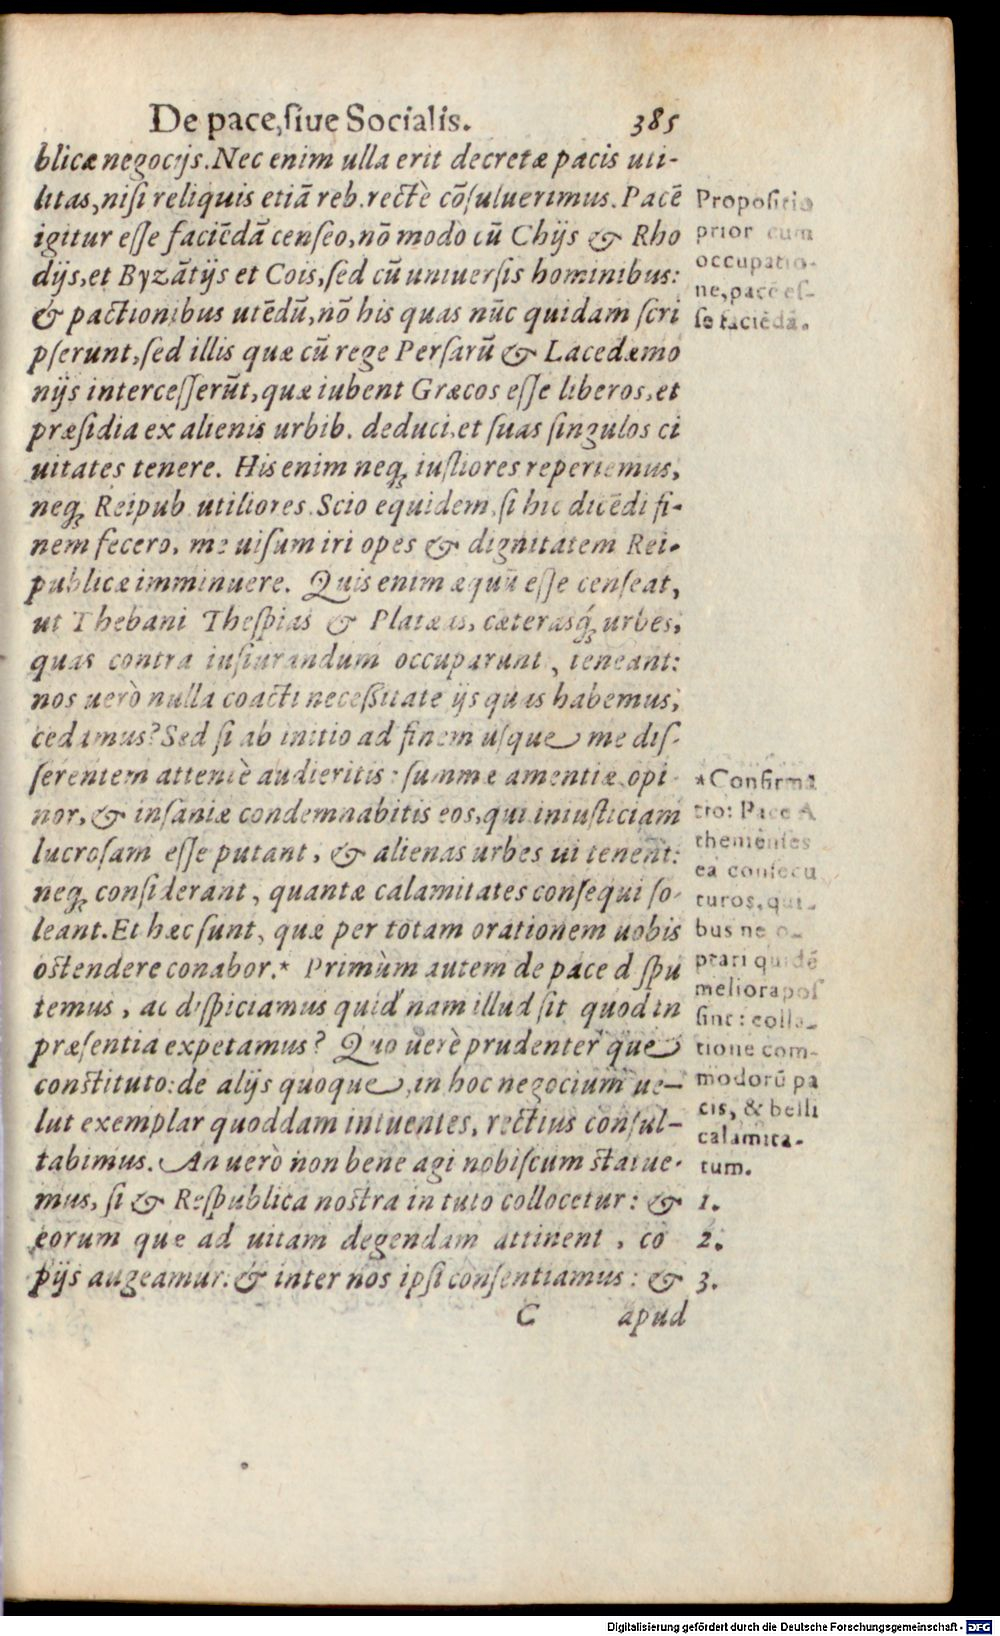 De pace, siue Socialis. 385
blicæ negocijs. Nec enim ulla erit decretæ pacis uti-
litas, nisi reliquis etiā reb. rectè cōsuluerimus. Pacē
igitur esse faciēdā censeo, nō modo cū Chijs & Rho
dijs, et Byzātijs et Cois, sed cū uniuersis hominibus:
& pactionibus utēdū, nō his quas nūc quidam scri
pserunt, sed illis quæ cū rege Persarū & Lacedæmo
nijs intercesserūt, quæ iubent Græcos esse liberos, et
præsidia ex alienis urbib. deduci, et suas singulos ci
uitates tenere. His enim neq; iustiores reperiemus,
neq; Reipub. utiliores. Scio equidem, si hic dicēdi fi-
nem fecero, me uisum iri opes & dignitatem Rei-
publicæ imminuere. Quis enim æquū esse censeat,
ut Thebani Thespias & Platæas, cæterasq́; urbes,
quas contra iusiurandum occuparunt, teneant:
nos uerò nulla coacti necessitate ijs quas habemus,
cedamus? Sed si ab initio ad finem usque me dis-
serentem attentè audieritis: summæ amentiæ, opi
nor, & insaniæ condemnabitis eos, qui iniusticiam
lucrosam esse putant, & alienas urbes ui tenent:
neq; considerant, quantæ calamitates consequi so-
leant. Et hæc sunt, quæ per totam orationem uobis
ostendere conabor.* Primùm autem de pace dispu
temus, ac dispiciamus quid nam illud sit quod in
præsentia expetamus? Quo uerè prudenter que
constituto: de alijs quoque, in hoc negocium ue-
lut exemplar quoddam intuentes, rectius consul-
tabimus. An uerò non bene agi nobiscum statue-
mus, si & Respublica nostra in tuto collocetur: &
eorum quæ ad uitam degendam attinent, co
pijs augeamur: & inter nos ipsi consentiamus: &
C apud
Propositio
prior cum
occupatio-
ne, pacē es-
se faciēdā.
*Confirma
tio: Pace A
thenienses
ea consecu
turos, qui-
bus ne o-
ptari quidē
meliora pos
sint: colla-
tione com-
modorū pa
cis, & belli
calamita-
tum.
1.
2.
3.
Digitalisierung gefördert durch die Deutsche Forschungsgemeinschaft - DFG